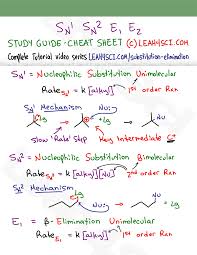 SN1 SN2 E1 E2
STUDY GUIDE - CHEAT SHEET (C) LEAH4SCI.COM
Complete Tutorial video series LEAH4SCI.com/substitution-elimination
SN1 = Nucleophilic Substitution Unimolecular
RateSN1 = k [alkyl] 1st order Rxn
SN1 Mechanism
Nu:
Lg
+Lg
Nu
Slow 'Rate' Step
Key Intermediate C+
SN2 = Nucleophilic Substitution Bimolecular
RateSN2 = k [alkyl][Nu] 2nd order Rxn
SN2 Mechanism
Nu:
Lg
Nu
+ Lg
E1 = β-Elimination Unimolecular
RateE1 = k [alkyl] 1st order Rxn